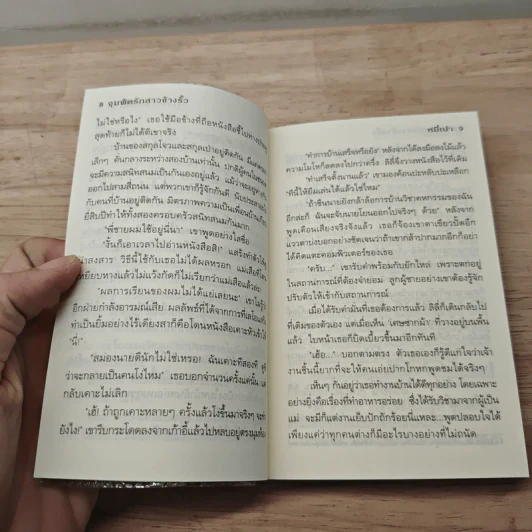 8 จุมพิตรักสาวข้างรั้ว
ไม่ใช่หรือไง" เธอใช้มือข้างที่ถือหนังสือชี้ไปทาง
สุดท้ายก็ไม่ได้ตีเขาจริง
บ้านของสกุลโจวและสกุลเปาอยู่ติดกัน มี
เล็กๆ คั่นกลางระหว่างสองบ้านเท่านั้น ปกติผู้
จะมีความสนิทสนมเป็นกันเองอยู่แล้ว แม้ว่าจะ
ออกไปสามสี่ถนน แต่พวกเขาก็รู้จักกันดี
กับคนที่บ้านอยู่ติดกัน มิตรภาพความเป็นเพื่อนบ้าน
ยี่สิบปีทำให้ทั้งสองครอบครัวสนิทสนมกันมาก
"พี่ชายผมใช้อยู่นี่นา" เขาพูดอย่างใสซื่อ
"งั้นก็เอาเวลาไปอ่านหนังสือสิ!" แสร้งทำตัว
น่าสงสาร วิธีนี้ใช้กับเธอไม่ได้ผลหรอก แม่เสือ
เหยียบหางแล้วไม่แว้งกัดก็ไม่เรียกว่าแม่เสือแล้ว
"ผลการเรียนของผมไม่ได้แย่เสียหน่อย" เขา
อีกฝ่ายกำลังอารมณ์เสีย ผลลัพธ์ที่ได้จากการที่
ทำเป็นยิ้มอย่างไร้เดียงสาก็คือโดนหนังสือเคาะหัวเข้า
"นี่!"
"สมองนายดีนักไม่ใช่เหรอ! ฉันเคาะทีสองที
ว่าจะกลายเป็นคนโง่ไหม" เธอบอกจำนวนครั้งแค่นั้น แต่
กลับเคาะไม่เลิก
"เฮ้! ถ้าถูกเคาะหลายๆ ครั้งแล้วโง่ขึ้นมาจริงๆ จะ
ยังไง!" เขารีบกระโดดลงจากเก้าอี้แล้วไปหลบอยู่ตรงมุมห้อง
หมี่เปา 9
"ทำการบ้านเสร็จหรือยัง" หลังจากได้ลงมือลงไม้แล้ว
ความโมโหก็ลดลงไปกว่าครึ่ง ลิลี่จึงวางหนังสือไว้ที่เดิม
"ทำเสร็จตั้งนานแล้ว" เขามองค้อนปะหลับปะเหลือก
"ทีนี้ให้ยืมเล่นได้แล้วใช่ไหม"
"ถ้าขืนนายยังกล้าลือการบ้านวิชาคหกรรมของฉัน
อีกละก็ ฉันจะจับนายโยนออกไปจริงๆ ด้วย" หลังจาก
พูดเตือนเสียงจริงจังแล้ว เธอก็จ้องเขาตาเขียวปัดอีก
แววตาบ่งบอกอย่างชัดเจนว่าถ้าเขากล้าปากมากอีกก็อย่า
ได้คิดแตะคอมพิวเตอร์ของเธอ
"ครับ..." เขารับคำพร้อมกับยักไหล่ เพราะตกอยู่
ในสถานการณ์ที่ต้องจำยอม ลูกผู้ชายอย่างเขาต้องรู้จัก
ปรับตัวให้เข้ากับสถานการณ์
เมื่อได้รับคำมั่นที่เธอต้องการแล้ว ลิลี่ก็เดินกลับไป
ที่เดิมของตัวเอง แต่เมื่อเห็น 'เศษซากผ้า' ที่วางอยู่บนพื้น
แล้ว ใบหน้าเธอก็บิดเบี้ยวขึ้นมาอีกทันที
"เฮ้อ..." บอกตามตรง ตัวเธอเองก็รู้ดีแก่ใจว่าเจ้า
งานชิ้นนี้ยากที่จะให้คนเอ่ยปากโกหกพูดชมได้จริงๆ
เห็นๆ กันอยู่ว่าเธอทำงานบ้านได้ดีทุกอย่าง โดยเฉพาะ
อย่างยิ่งคือเรื่องที่ทำอาหารอร่อย ซึ่งได้รับวิชามาจากผู้เป็น
แม่ จะมีก็แต่งานเย็บปักถักร้อยนี่แหละ...พูดปลอบใจได้
เพียงแค่ว่าทุกคนต่างก็มีอะไรบางอย่างที่ไม่ถนัด